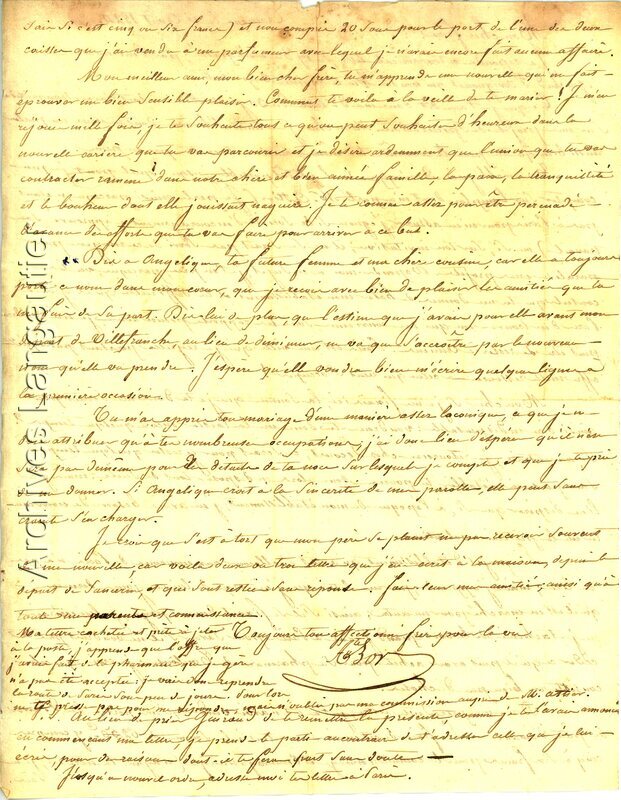 sais si c'est cinq ou six francs) et non compris 20 sous pour le port de l'une des deux
caisses que j'ai vendu à un parfumeur avec lequel je n'avais encore fait aucune affaire.
Mon meilleur ami, mon bien cher frère, tu m'apprends une nouvelle qui me fait
éprouver un bien sensible plaisir. Comment te voila à la veille de te marier! Je m'en
rejouis mille fois, je te souhaite tous ce qu'on peut souhaiter d'heureux dans la
nouvelle carière que tu vas parcourir et je désire ardemment que l'union que tu vas
contracter ramène dans notre chère et bien aimée famille, la paix, la tranquillité
et le bonheur dont elle jouissait naguère. Je te connais assez pour être persuadé
d'avance des efforts que tu vas faire pour arriver à ce but.
Dis à Angelique, ta future femme et ma chère cousine, car elle a toujours
porté ce nom dans mon cœur, que je reçois avec bien de plaisir les amitiés que tu
me fais de sa part. Dis lui de plus, que l'estime que j'avais pour elle avant mon
départ de Villefranche, au lieu de diminuer, ne va que s'accroître par le nouveau
nom qu'elle va prendre. J'espère qu'elle voudra bien m'écrire quelques lignes à
la première occasion.
Tu m'as appris ton mariage d'une manière assez laconique, ce que je ne
dois attribuer qu'à tes nombreuses occupations; j'ai donc lieu d'espérer qu'il n'en
sera pas de même pour les détails de ta noce sur lesquels je compte et que je te prie
de me donner. Si Angelique croit à la sincerité de mes parolles, elle peut sans
crainte s'en charger.
Je crois que s'est à tors que mon père se plaint ne pas recevoir souvent
de mes nouvelles, car voila deux ou trois lettres que j'ai écrit à la maison, depuis le
depart de et qui sont restées sans réponse. Fais leur mes amitiés, ainsi qu'à
toutes nos parents et connaissances.
Toujours ton affectionné frère pour la vie
Ma lettre cachetée et prête à jeter
à la poste, j'apprends que l'offre que
j'avais fait de la pharmacie que je gère
n'a pas été acceptée; je vais donc reprendre
la route de Paris sous peu de jours.
pour me repondre ma commission auprès de M.
Au lieu de prier de te remettre la présente, comme je te l'avais annoncé
en commençant ma lettre, je prends le parti au contraire de t'adresser celle que je lui
écris, pour des raisons dont il te fera part sans doute
Jusqu'à nouvel ordre, adresse moi tes lettres à Paris.
Archives Langeulfie